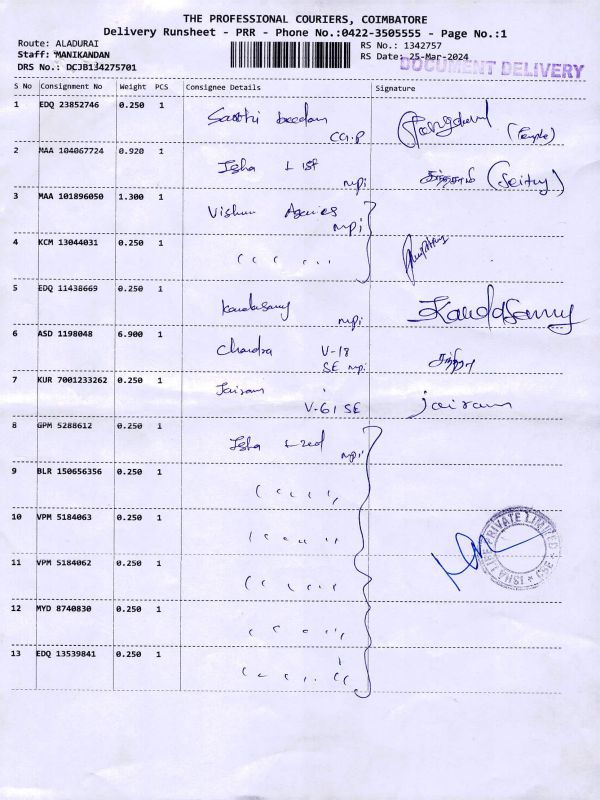 THE PROFESSIONAL COURIERS, COIMBATORE
Delivery Runsheet - PRR - Phone No.:0422-3505555 - Page No.:1
Route: ALADURAI RS No.: 1342757
Staff: MANIKANDAN RS Date: 25-Mar-2024
DRS No.: DCJB134275701 DOCUMENT DELIVERY
S No Consignment No Weight PCS Consignee Details Signature
1 EDQ 23852746 0.250 1
2 MAA 104067724 0.920 1 Isha mpi
3 MAA 101896050 1.300 1 Vishnu Agencies mpi
4 KCM 13044031 0.250 1
5 EDQ 11438669 0.250 1 kandasamy mpi Kandasamy
6 ASD 1198048 6.900 1 Chandra V-18
SE mpi
7 KUR 7001233262 0.250 1 Jairam V-61 SE jairam
8 GPM 5288612 0.250 1 Isha mpi
9 BLR 150656356 0.250 1
10 VPM 5184063 0.250 1
11 VPM 5184062 0.250 1
12 MYD 8740830 0.250 1
13 EDQ 13539841 0.250 1
ISHA LIFE PRIVATE LIMITED * CBE *